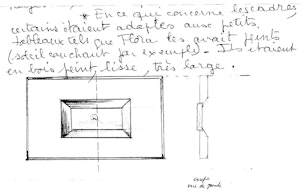 * En ce qui concerne les cadres,
certains étaient adaptés aux petits
tableaux tels que Flora les avait peints
(soleil couchant par exemple). Ils étaient
en bois peint, lisse, très large.
coupe